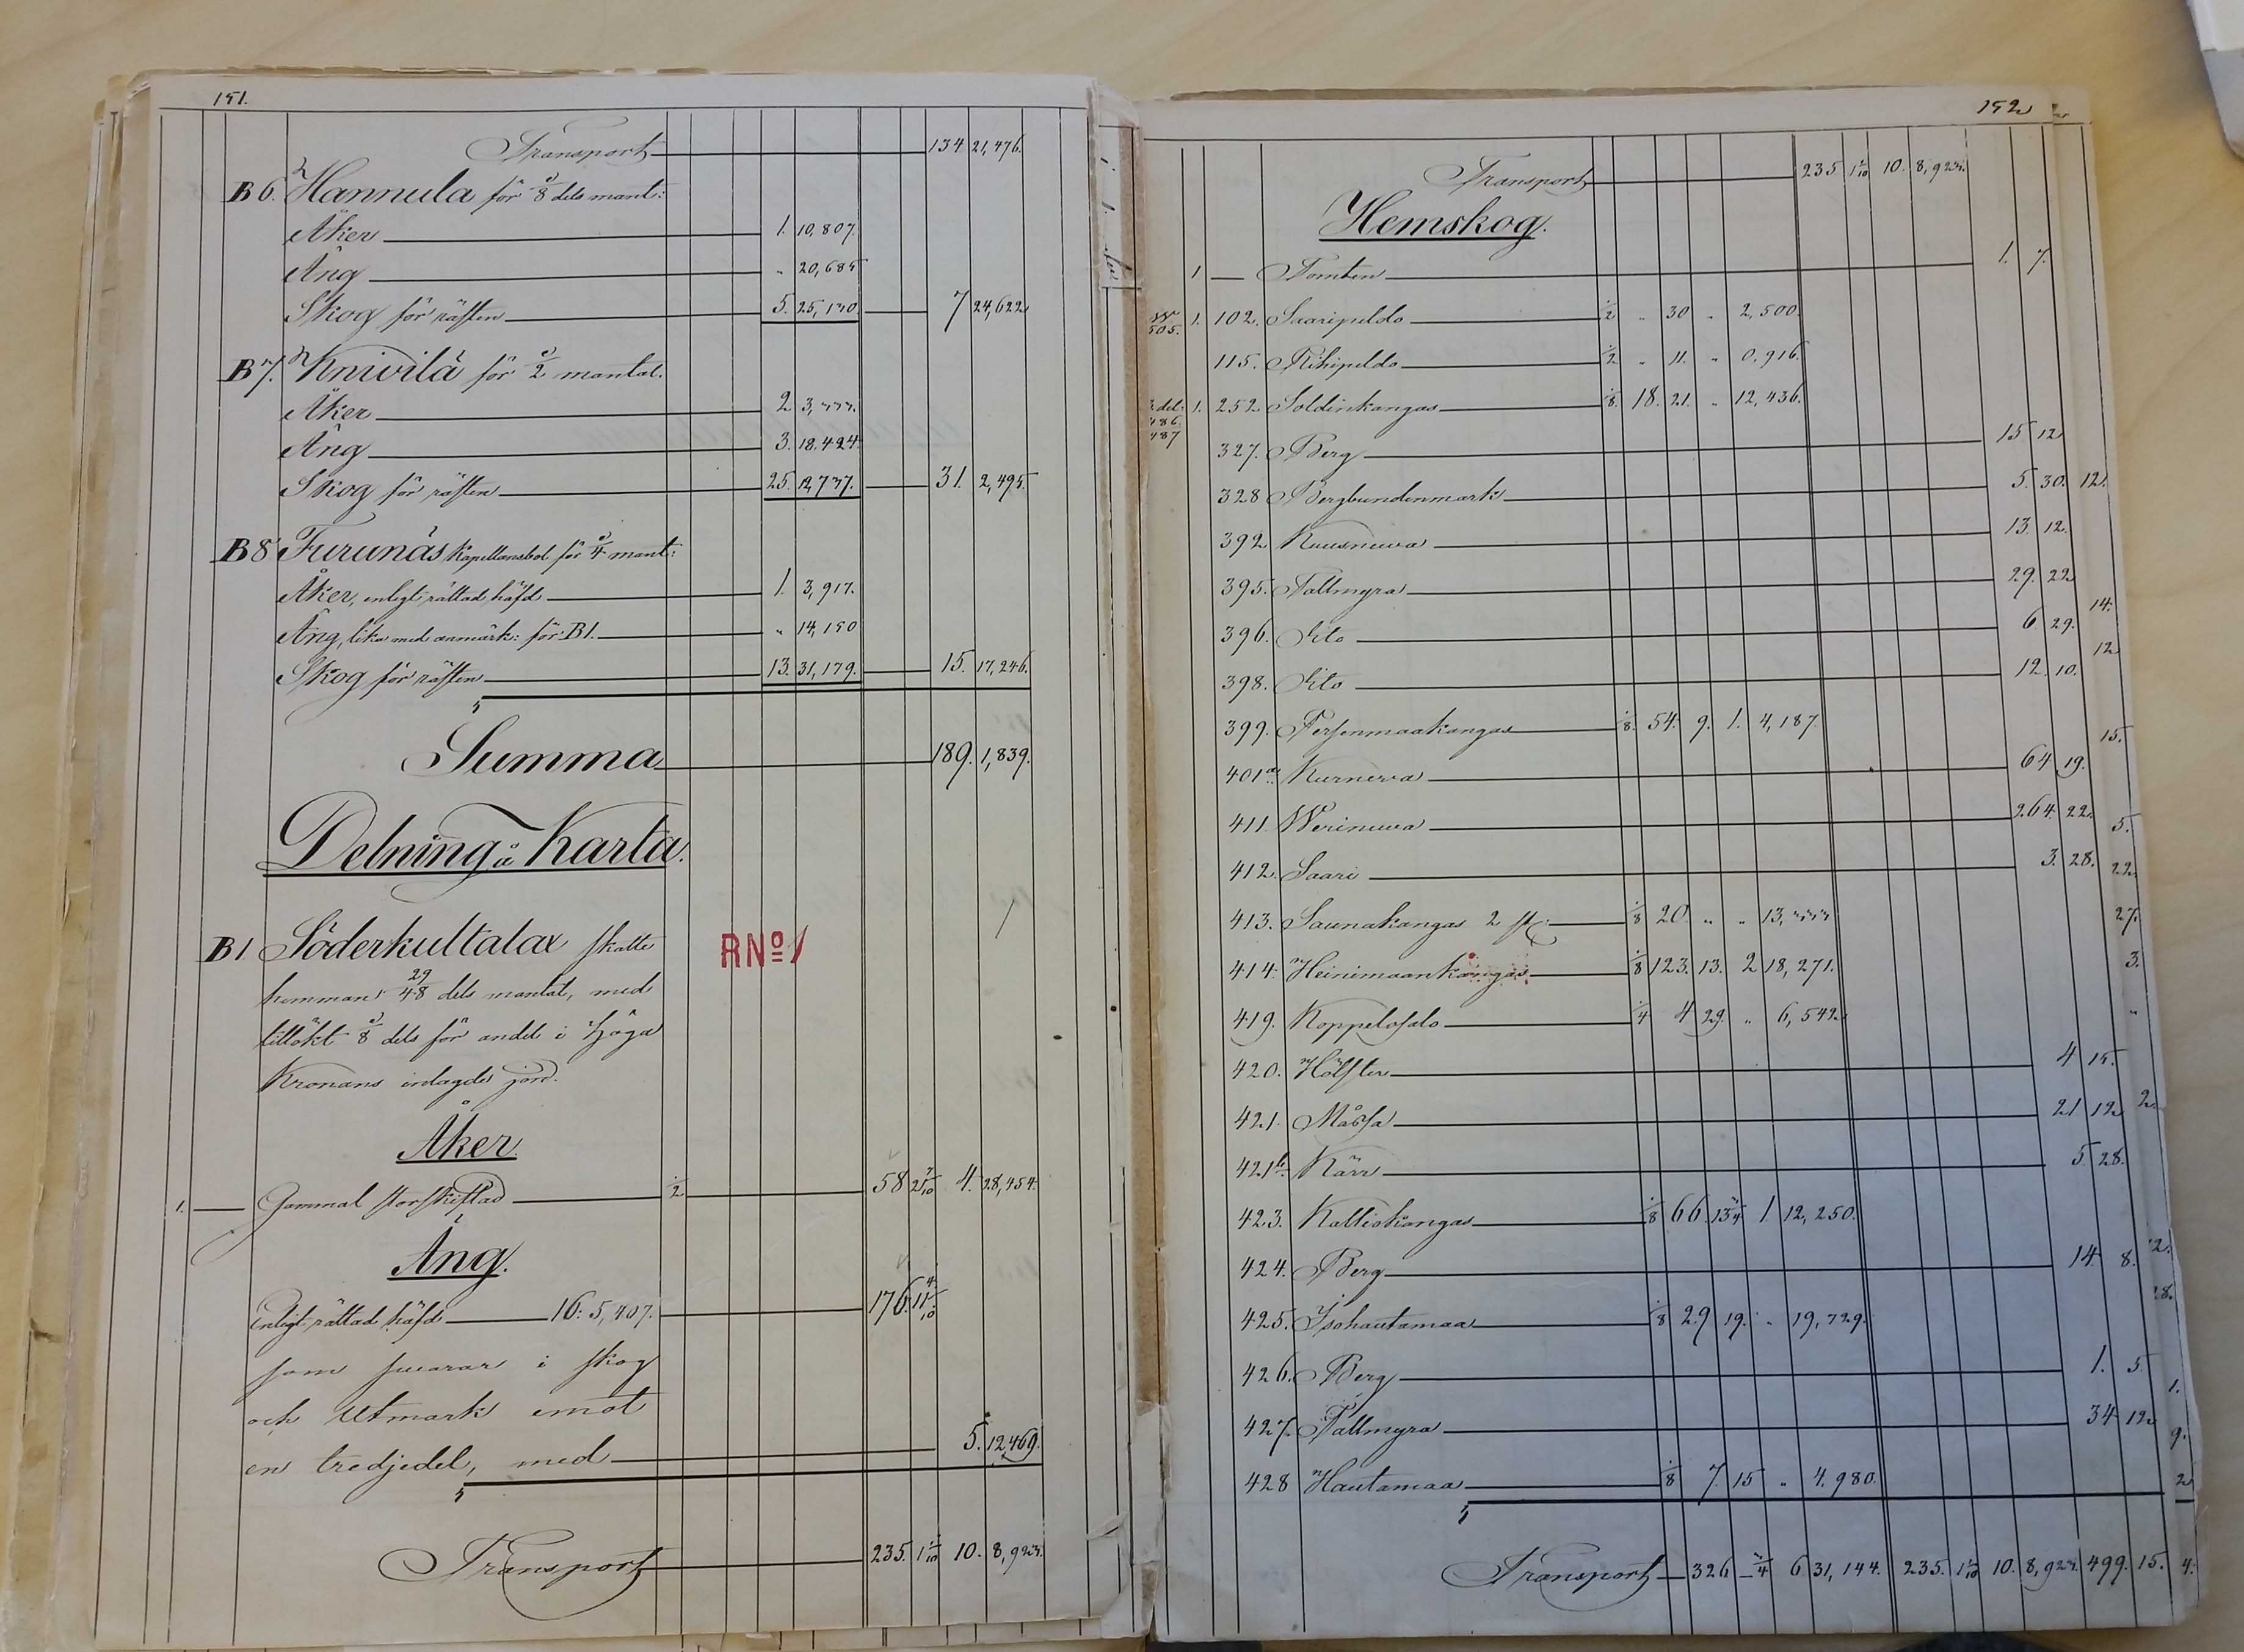 151.
Transport 134 21,476.
B6. Hannula för 3/8 dels mant:
Åker 1. 10,807.
Äng " 20,685
Skog för räften 5. 25,130. 7 24,622
B7. Kniwilä för 1/2 mantal.
Åker 2 3,333.
Äng 3. 18,424.
Skog för räften 25. 12,737. 31. 2,495.
B8 Furunäs Kapellansbol för 1/4 mant:
Åker, enligt rättad häfd 1. 3,917.
Äng, lika med anmärk: för B1. " 14,150
Skog för räften 13. 31,179. 15. 17,246.
Summa 189. 1,839.
Delning å Karta.
B1 Söderkultalax skatte RNo1
hemman 29/48 dels mantal, med
tillökt 1/8 dels för andel i Höga
Kronans indagde jord.
Åker.
1. Gammal storskiftad 1/2 58 21 7/10 4. 28,454.
Äng.
Enligt rättad häfd 16: 5,407. 176. 11 4/10
som swarar i skog
och Utmark emot
en tredjedel, med 5. 12,469.
Transport 235. 1 1/10 10. 8,923.
152
Transport 235 1 1/10 10. 8,923.
Hemskog.
1 Tomten 1. 7.
505. 1. 102. Saaripeldo 1/2 " 30 " 2,500.
115. Rihipeldo 1/2 " 11. " 0,916.
486. 487 1. 252. Soldinkangas 1/8. 18. 21. " 12,436.
327. Berg 15 12
328 Bergbundenmark 5. 30. 12.
392 Kuusneva 13. 12.
395. Tallmyra 29. 22
396. Dito 6 29. 14.
398. Dito 12. 10. 12
399. 1/8. 54. 9. 1. 4,187.
401a. Kurneva 64 19. 15.
411 Werineva 264. 22. 5.
412. Saari 3. 28. 22.
413. Saunakangas 2 st. 1/8 20. " " 13,333 27.
414. Heinimaankangas 1/8 123. 13. 2 18,271. 3.
419. Koppelosalo 1/4 4 29. " 6,542. "
420. Hölster 4 15.
421. Måssa 21 12 2.
421b. Kärr 5 28.
423. Kalliokangas 1/8 66. 13 3/4 1. 12,250.
424. Berg 14. 8. 12.
425. Isohautamaa 1/8 29 19. " 19,729. 28.
426. Berg 1. 5
427. Tallmyra 34. 12 1.
428 Hautamaa 1/8 7. 15 " 4,980. 9.
2
Transport 326 3/4 6 31,144. 235. 1 1/10 10. 8,923. 499. 15. 4.